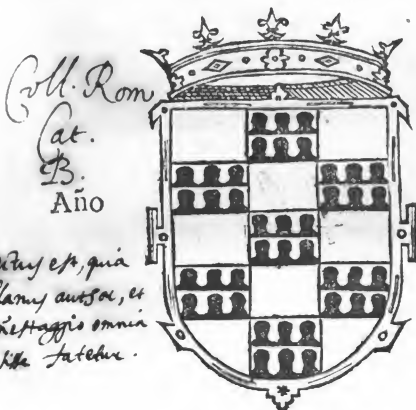 Coll. Rom
Cat.
B.
Año
est, quia
author, et
omnia
fatetur.